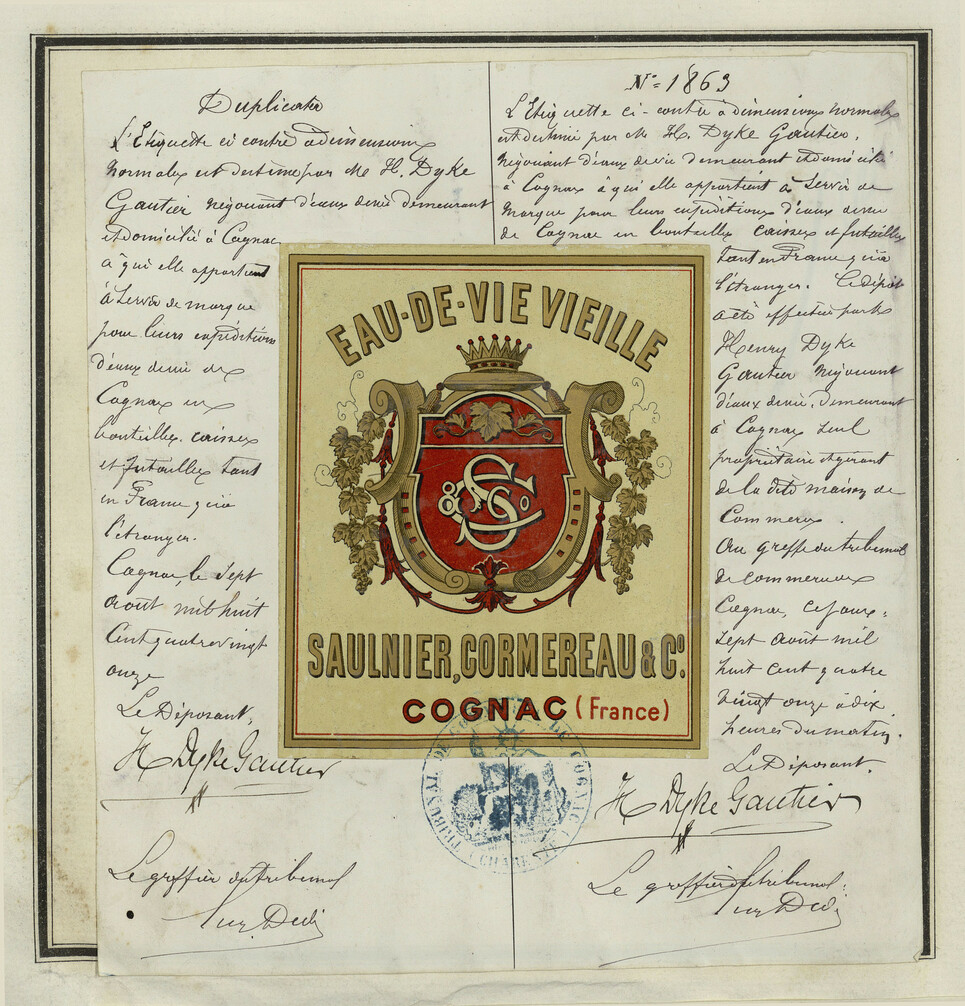 Duplicata
L'Etiquette ci contre à dimensions
normales est destinée par Mr H. Dyke
Gautier négociant d'eaux de vie demeurant
et domicilié à Cognac
à qui elle appartient
à servir de marque
pour leurs expéditions
d'eaux de vie de
Cognac en
bouteilles, caisses
et futailles tant
en France qu'à
l'étranger.
Cognac, le sept
août mil huit
cent quatre vingt
onze
Le Déposant,
H Dyke Gautier
Le greffier du tribunal
N° 1863
L'Etiquette ci-contre à dimensions normales
est destinée par Mr H. Dyke Gautier,
négociant d'eaux de vie demeurant et domicilié
à Cognac à qui elle appartient à servir de
marque pour leurs expéditions d'eaux de vie
de Cognac en bouteilles caisses et futailles
tant en France qu'à
l'étranger. Le dépôt
a été effectué par Mr
Henry Dyke
Gautier négociant
d'eaux de vie, demeurant
à Cognac seul
propriétaire et gérant
de la dite maison de
Commerce.
Au greffe du tribunal
de commerce de
Cognac, ce jour,
sept août mil
huit cent quatre
vingt onze à dix
heures du matin.
Le Déposant,
H Dyke Gautier
Le greffier du tribunal:
EAU-DE-VIE VIEILLE
SC & Co
SAULNIER, CORMEREAU & Co.
COGNAC (France)
TRIBUNAL DE COMMERCE DE COGNAC (CHARENTE)